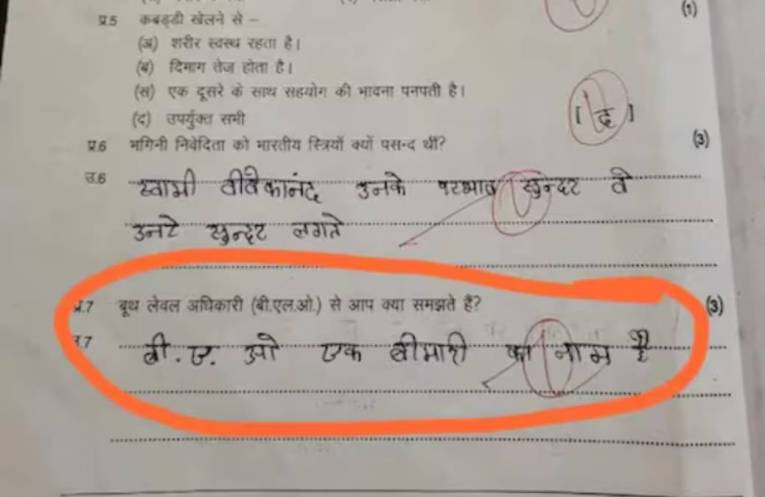 (1)
प्र.5 कबड्डी खेलने से –
(अ) शरीर स्वस्थ रहता है।
(ब) दिमाग तेज होता है।
(स) एक दूसरे के साथ सहयोग की भावना पनपती है।
(द) उपर्युक्त सभी [ द ]
प्र.6 भगिनी निवेदिता को भारतीय स्त्रियाँ क्यों पसन्द थीं? (3)
उ.6 स्वामी वीवेकानंद उनके परभाव सुन्दर वे
उनटे सुन्दर लगते
प्र.7 बूथ लेवल अधिकारी (बी.एल.ओ.) से आप क्या समझते हैं? (3)
उ.7 बी. ए. ओ एक बीमारी का नाम है